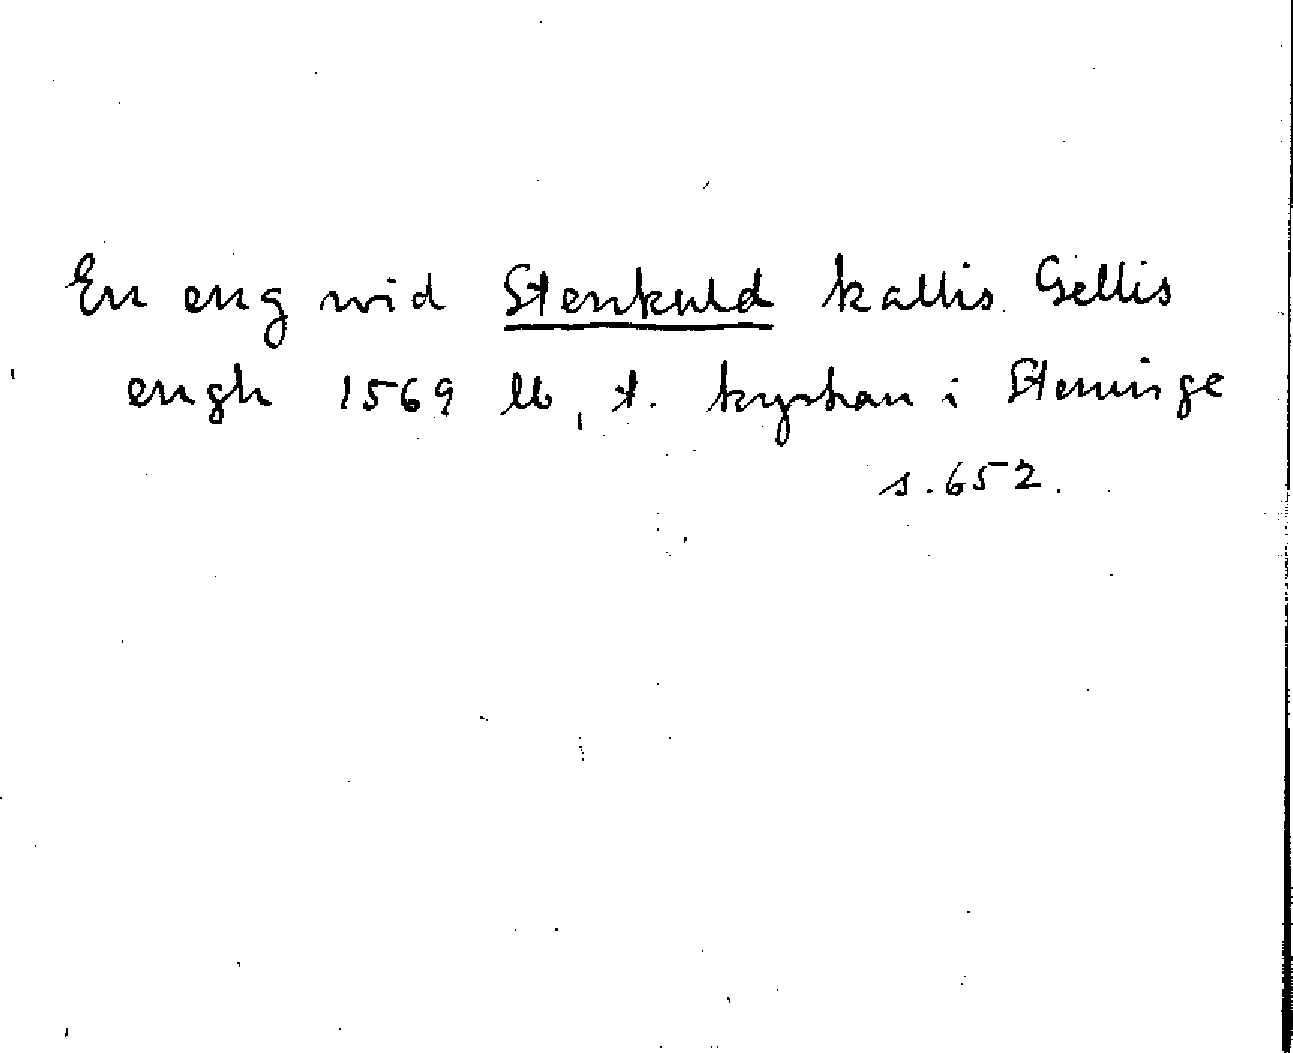 En eng wid Stenkuld kallis Gellis
engh 1569 lb, t. kyrkan i Steninge
s. 652.